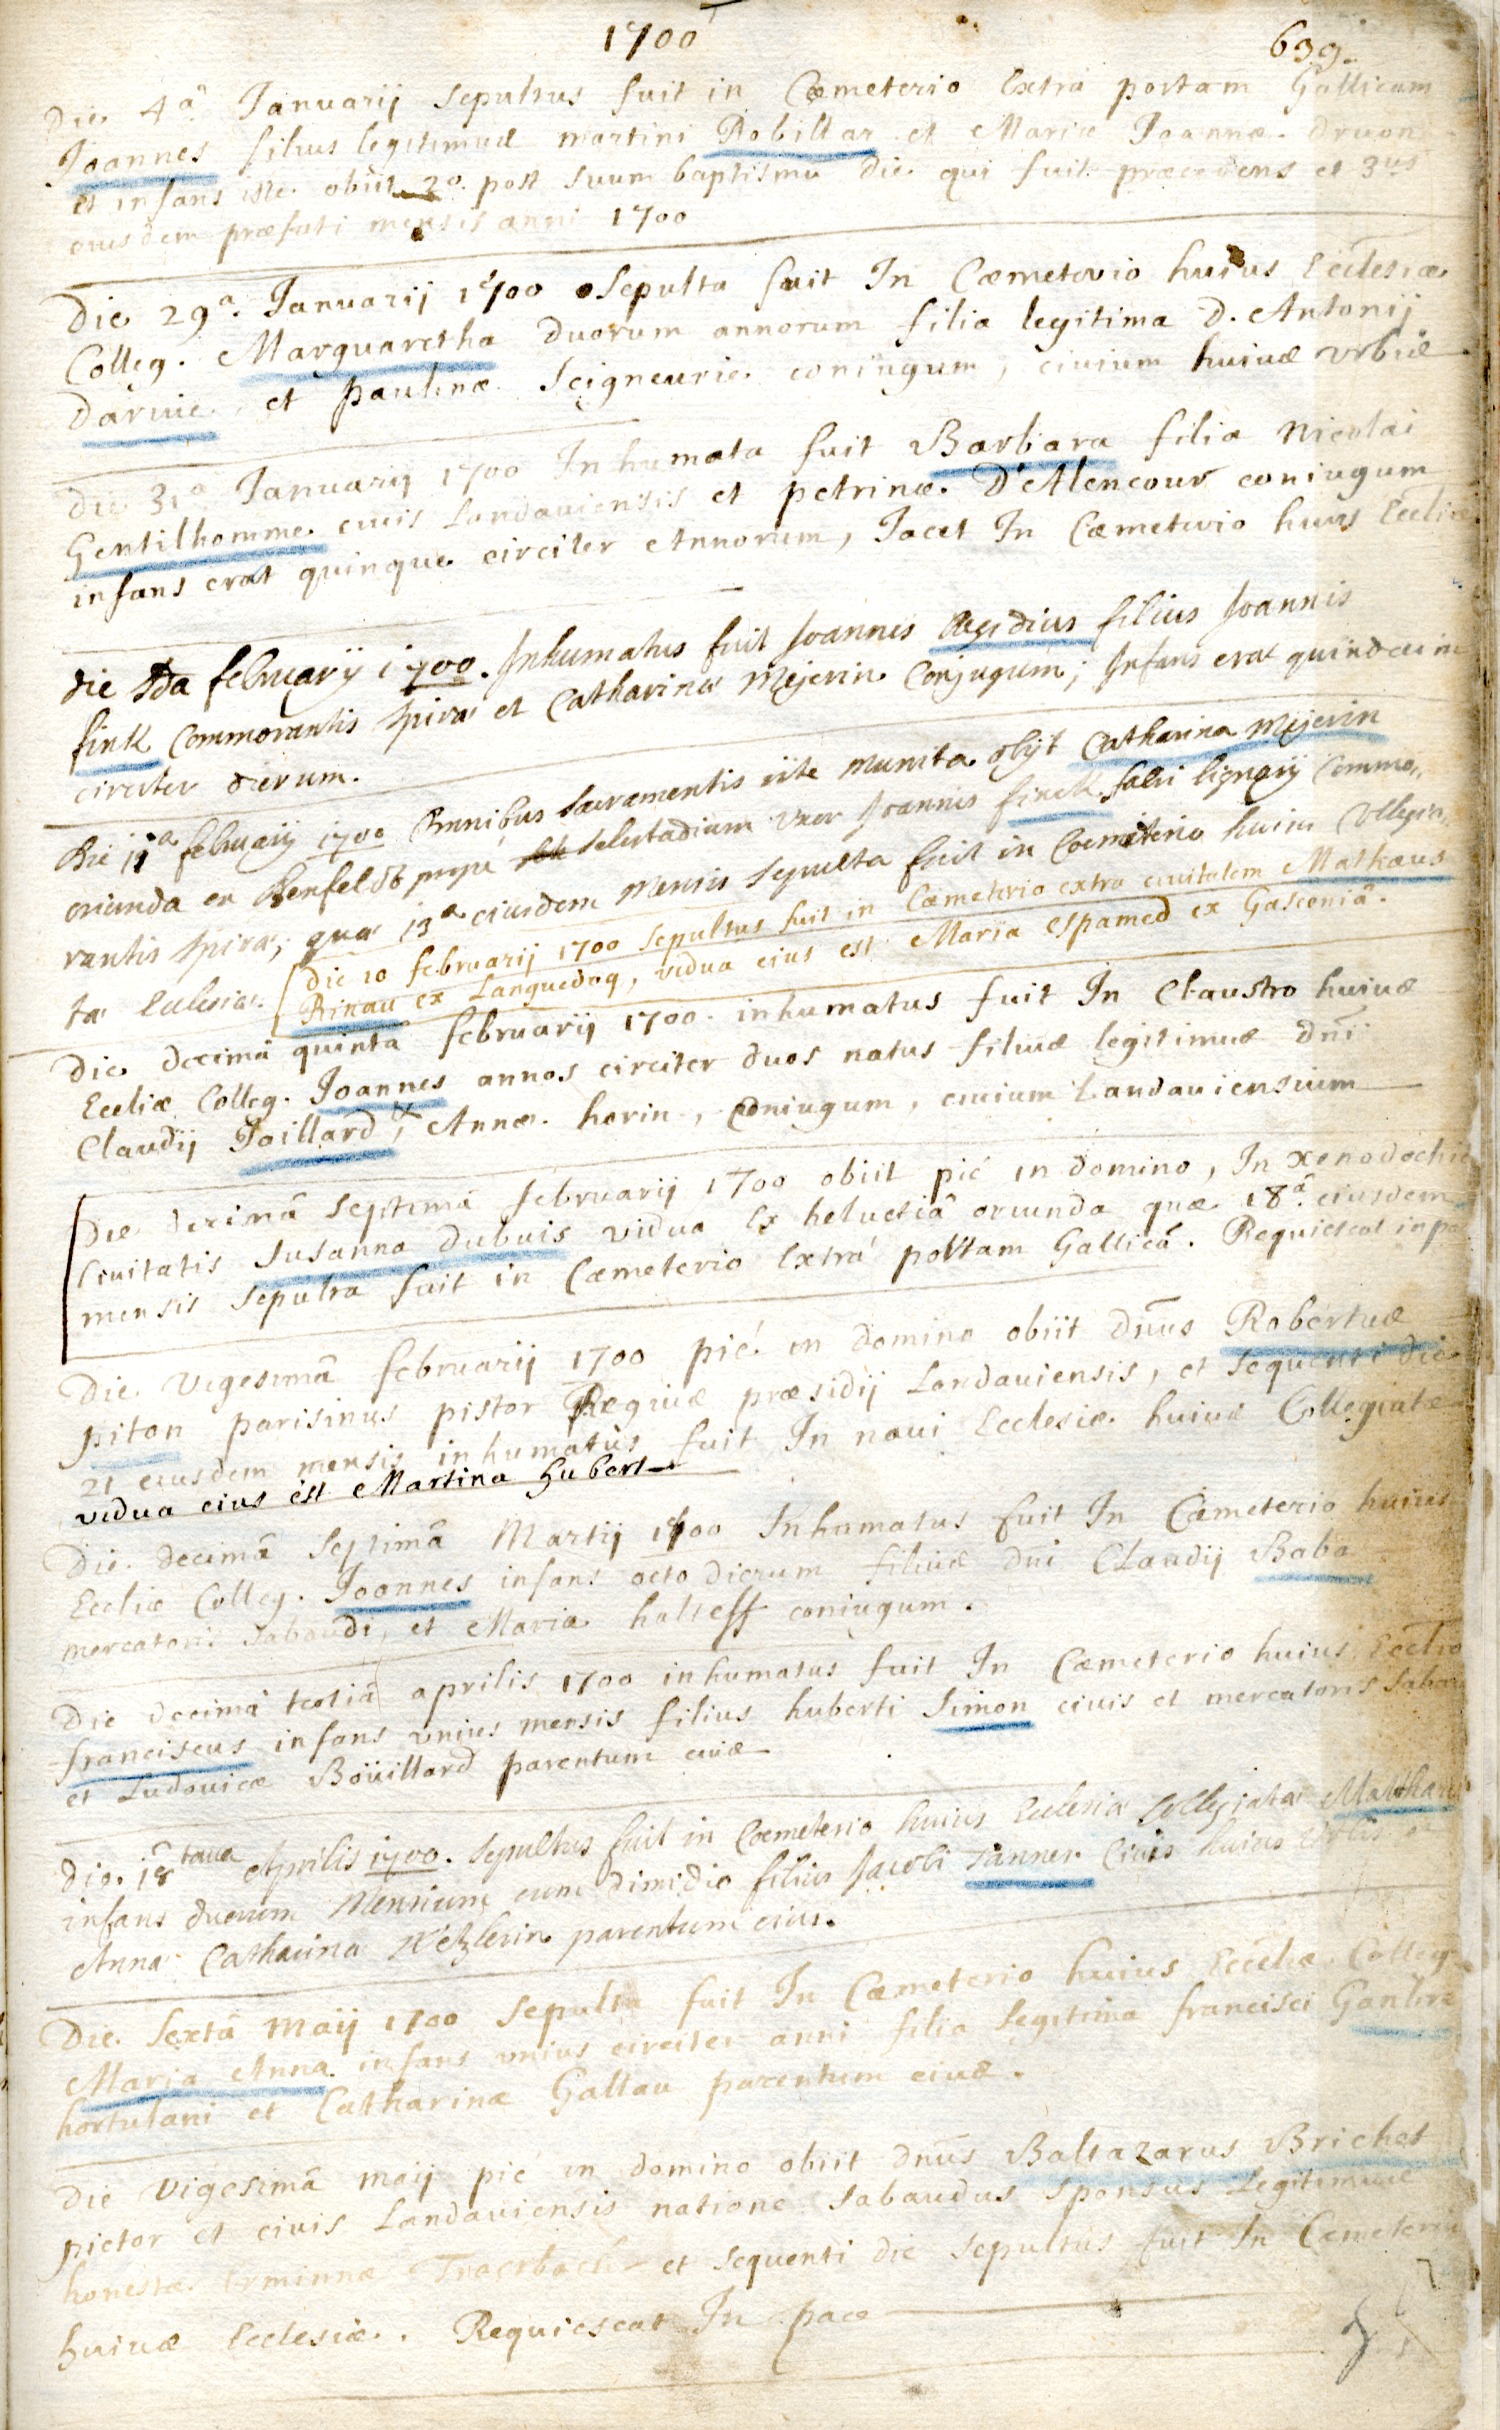 1700
639.
Die 4â Januarij sepultus fuit in Cæmeterio Extra portam Gallicam
Joannes filius legitimus martini Robillar et Mariæ Joannæ druon
et infans iste obiit 2o. post suum baptismu die qui fuit præcedens et 3us
eiusdem præfati mensis anni 1700
Die 29a. Januarij 1700 sepulta fuit In Cæmeterio huius Ecclesiæ
Colleg. Marguaretha duorum annorum filia legitima D. Antonij
Darvie, et paulinæ Seigneurie coniugum, civium huius vrbis
die 31a Januarij 1700 Inhumata fuit Barbara filia Nicolai
Gentilhomme civis Landaviensis et petrinæ D'Alencour coniugum
infans erat quinque circiter Annorum, Jacet In Cæmeterio huius Eccliæ
die februarij 1700. Inhumatus fuit Joannes Aegidius filius Joannis
fink Commorantis Spiræ et Catharinæ Mejerin Conjugum; Infans erat quindecim
circiter dierum.
Die 11a februarij 1700 Omnibus Sacramentis rite munita obijt Catharina Mejerin
oriunda ex Benfeldt prope Selestadium vxor Joannis finck fabri lignarij Commo,,
rantis Spiræ, quæ 13a eiusdem Mensis Sepulta fuit in Coemiterio huius Collegia,,
tæ Ecclesiæ.
Die 10 februarij 1700 sepultus fuit in Cæmeterio extra civitatem Mathæus
Rinau ex Languedoq, vidua eius est Maria Espamed ex Gasconiâ.
Die decimâ quintâ februarij 1700. inhumatus fuit In Claustro huius
Eccliæ Colleg. Joannes annos circiter duos natus filius legitimus dni
Claudij Joillard, & Annæ horin, coniugum, civium Landaviensium
Die decimâ septimâ februarij 1700 obiit piè in domino, In xenodochio
Civitatis Susanna Dubuis vidua Ex helvetiâ oriunda quæ 18â. eiusdem
mensis sepulta fuit in Cæmeterio Extrà portam Gallicâ. Requiescat in pa
Die Vigesimâ februarij 1700 piè in domino obiit dnus Robertus
piton parisinus pistor Regius præsidij Landaviensis, et sequenti die
21 eiusdem mensis inhumatus fuit In navi Ecclesiæ huius Collegiatæ
vidua eius est Martina hubert
Die decimâ septimâ Martij 1700 Inhumatus fuit In Cæmeterio huius
Eccliæ Colleg. Joannes infans octo dierum filius dni Claudij Baba
mercatoris Sabaudi, et Mariæ halteff coniugum.
Die decimâ tertiâ aprilis 1700 inhumatus fuit In Cæmeterio huius Eccliæ
franciscus infans vnius mensis filius huberti Simon civis et mercatoris Sabau
et Ludovicæ Boüillard parentum eius
Die 18tava Aprilis 1700. Sepultus fuit in Coemeterio huius Ecclesiæ Collegiatæ Matthæus
infans duorum Mensium cum dimidio filius Jacobi Tanner Civis huius Vrbis et
Anna Catharina Wetzlerin parentum eius.
Die Sextâ Maij 1700 Sepulta fuit In Cæmeterio huius Eccliæ Colleg.
Maria Anna infans vnius circiter anni filia legitima francisci
hortulani et Catharinæ Gallau parentum eius.
Die Vigesimâ maij piè in domino obiit dnus Baltazarus Brichet
pictor et civis Landaviensis natione Sabaudus Sponsus Legitimus
honestæ Erminnæ Traerbach et sequenti die sepultus fuit In Cæmeterio
huius Ecclesiæ. Requiescat In pace